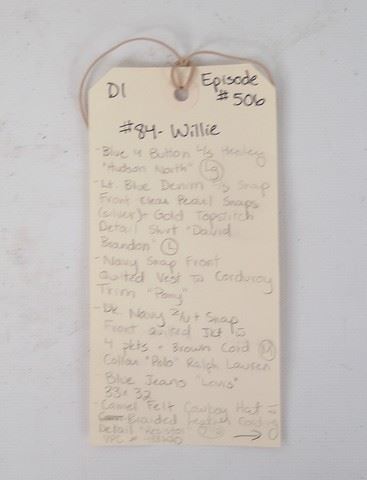 D1
Episode
#506
#84- Willie
- Blue 4 Button L/S Henley
"Hudson North" Lg
- Lt. Blue Denim L/S Snap
Front Clear Pearl Snaps
(silver)+ Gold Topstitch
Detail Shirt "David
Brandon" L
- Navy Snap Front
Quilted Vest Corduroy
Trim
- Dk. Navy Snap
Front Quilted Jkt
4 pkts - Brown Cord M
Collar "Polo" Ralph Lauren
Blue Jeans "Levis"
33x 32
- Camel Felt Cowboy Hat
Braided Leather
Detail "Resistol"